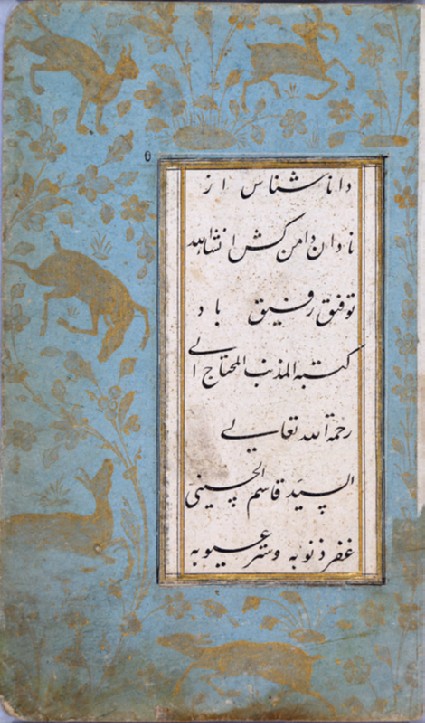 داناشناس از
نادان دامن کش انشاالله
توفیق رفیق باد
کتبه المذنب المحتاج الی
رحمة الله تعالی
السید قاسم الحسینی
غفر ذنوبه وستر عیوبه